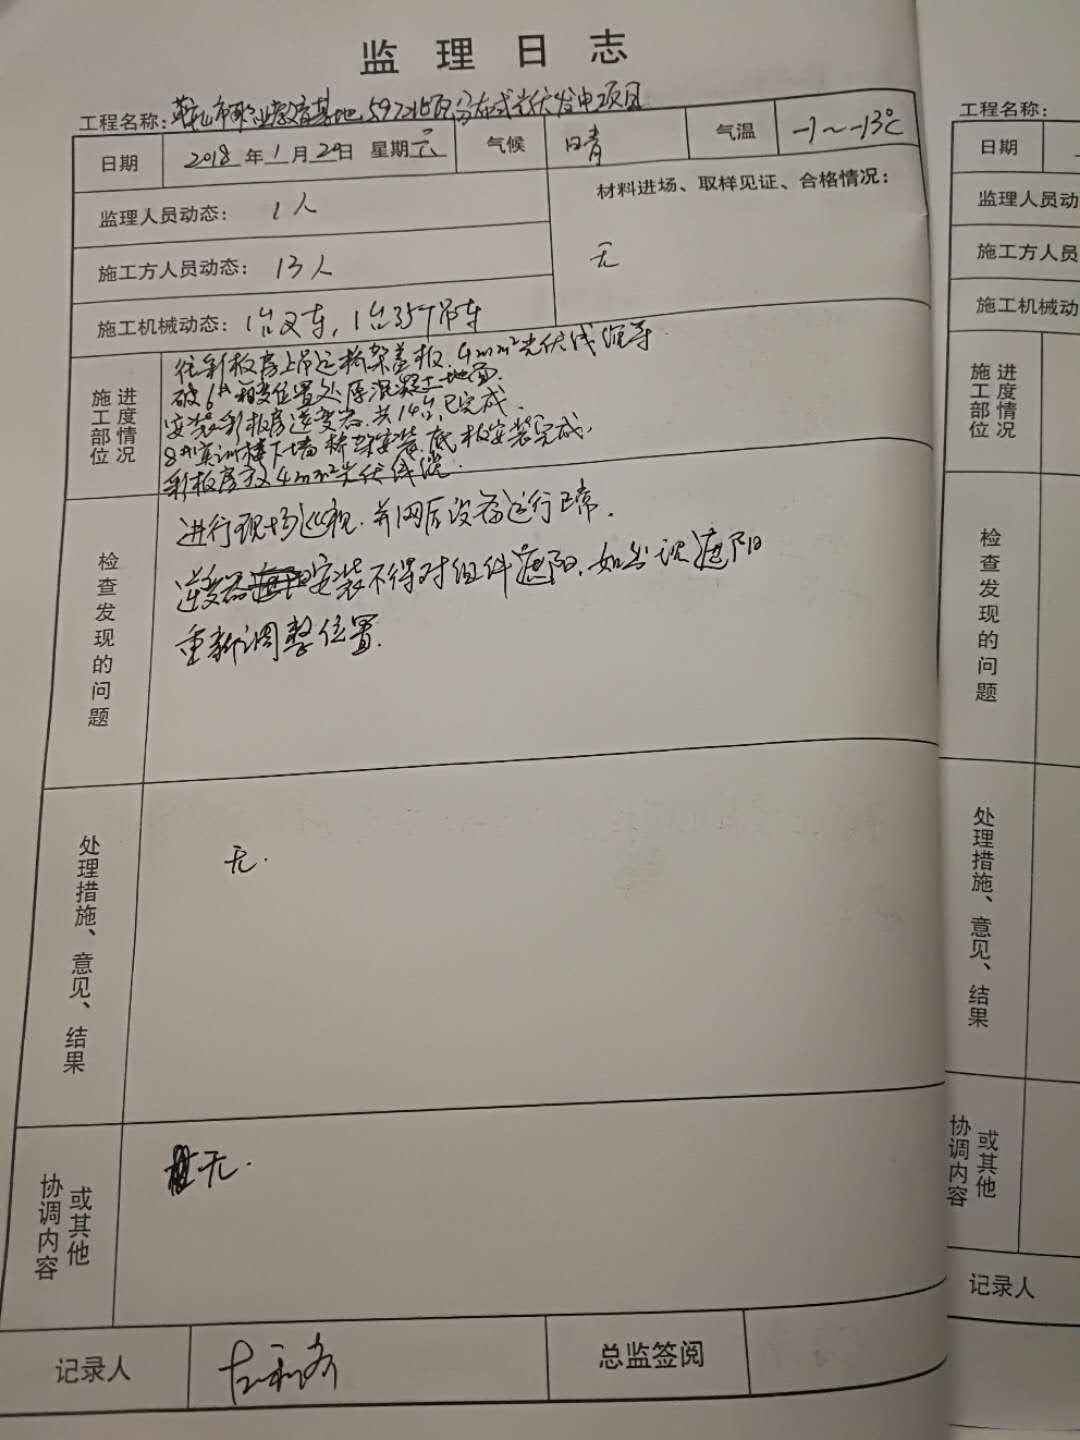 监 理 日 志
工程名称: 市职业教育基地 5.9724兆瓦分布式光伏发电项目
日期 2018 年 1 月 29日 星期 气候 晴 气温 -1～-13℃
监理人员动态: 1人
材料进场、取样见证、合格情况:
无
施工方人员动态: 13人
施工机械动态: 1台叉车, 1台35T吊车
施工部位 进度情况
往彩板房上吊运桥架盖板, 4mm²光伏线缆等
破6#箱变位置处原混凝土地面.
安装彩板房逆变器, 共14台, 已完成.
8#实训楼下墙桥架安装, 底板安装完成,
彩板房放4mm²光伏线缆.
检查发现的问题
进行现场巡视. 并网后设备运行正常.
逆变器安装不得对组件遮阳, 如出现遮阳
重新调整位置.
处理措施、意见、结果
无.
协调内容 或其他
无.
记录人
总监签阅
工程名称:
日期
监理人员动
施工方人员
施工机械动
施工部位 进度情况
检查发现的问题
处理措施、意见、结果
协调内容 或其他
记录人